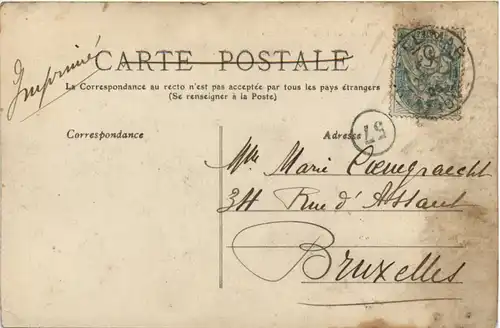 Imprimé
CARTE POSTALE
La Correspondance au recto n'est pas acceptée par tous les pays étrangers
(Se renseigner à la Poste)
Correspondance
Adresse
57
Mlle Marie
34 Rue d'Assaut
Bruxelles